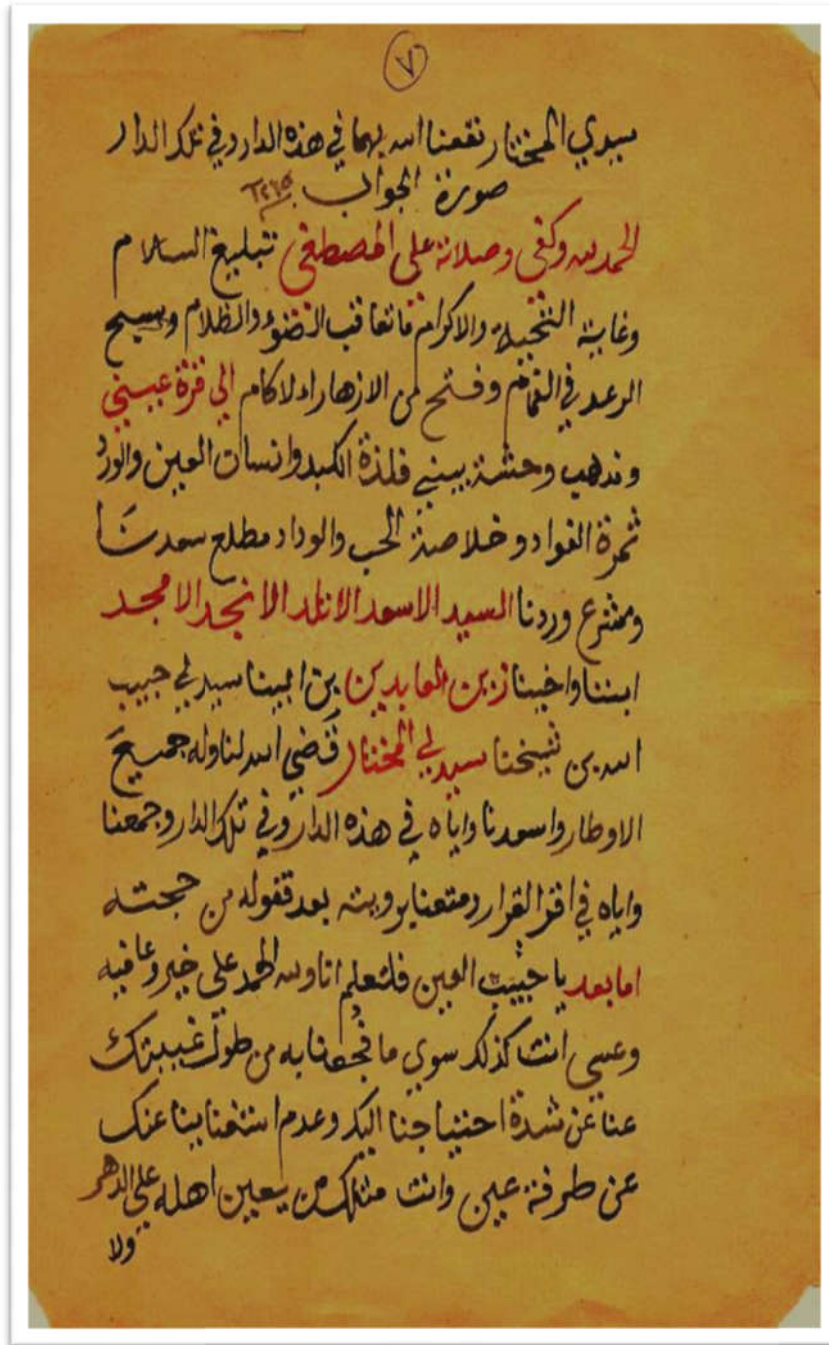 ٧
سيدي المختار نفعنا الله بهما في هذه الدار وفي تلك الدار
صورة الجواب ١٢٦٥
الحمد لله وكفى وصلاته على المصطفى تبليغ السلام
وغاية التحية والاكرام ما تعاقب الضوء والظلام وسبح
الرعد في الغمام وفتح من الازهار اولاكام الي قرة عيني
ومذهب وحشة بيني فلذة الكبد وانسان العين والورد
ثمرة الفواد وخلاصة الحب والوداد مطلع سعدنا
ومشرع وردنا السيد الاسعد الاتلد الانجد الامجد
ابننا واخينا زين العابدين بن ابينا سيدي حبيب
الله بن شيخنا سيدي المختار قضي الله لنا وله جميع
الاوطار واسعدنا واياه في هذه الدار وفي تلك الدار وجمعنا
واياه في اقر القرار ومتعنا برويته بعد قفوله من حجته
اما بعد يا حبيب العين فلتعلم انا ولله الحمد على خير وعافيه
وعسي انت كذلك سوي ما فجعنا به من طول غيبتك
عنا عن شدة احتياجنا اليك وعدم استغنايينا عنك
عن طرفة عين وانت مثلك من يعين اهله علي الدهر
ولا